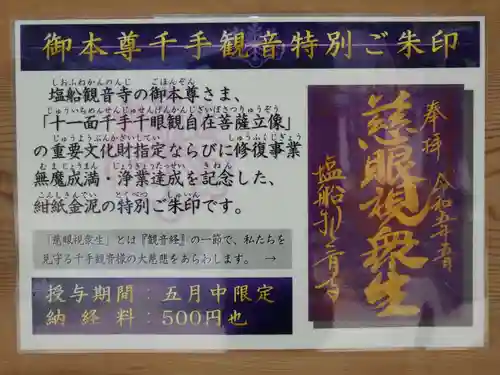 御本尊千手観音特別ご朱印
しおふねかんのんじ ごほんぞん
塩船観音寺の御本尊さま、
じゅういちめんせんじゅせんげんかんじざいぼさつりゅうぞう
「十一面千手千眼観自在菩薩立像」
じゅうようぶんかざいしてい しゅうふくじぎょう
の重要文化財指定ならびに修復事業
むまじょうまん じょうぎょうたっせい きねん
無魔成満・浄業達成を記念した、
こんしきんでい とくべつ しゅいん
紺紙金泥の特別ご朱印です。
「慈眼視衆生」とは『観音経』の一節で、私たちを
見守る千手観音様の大慈悲をあらわします。 →
授与期間：五月中限定
納経料：500円也
奉拝
令和五年五月
慈眼視衆生
塩船観音寺